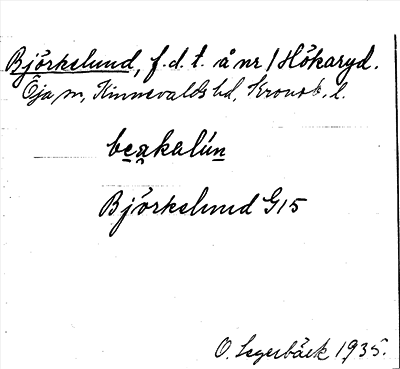 Björkelund, f.d.t. å nr 1 Hökaryd.
Öja, sn, Kinnevalds hd, Kronob. l.
beạkalún
Björkelund G15
O. Segerbäck 1935.